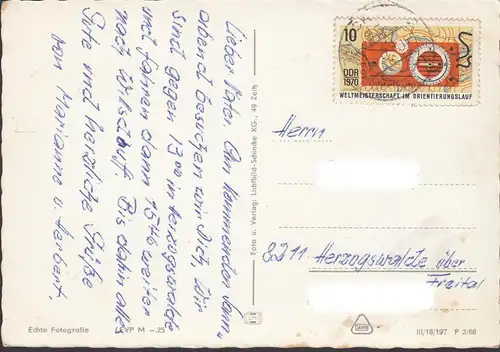 Lieber Vater. Am kommenden Sonn-
abend besuchen wir Dich. Wir
sind gegen 13 00 in Herzogswalde
und fahren dann 15 46 weiter
nach Wilsdruff. Bis dahin alles
Gute und herzliche Grüße
von Marianne u. Herbert.
Foto u. Verlag: Lichtbild-Schincke KG., 49 Zeitz
10
DDR
1970
WELTMEISTERSCHAFT IM ORIENTIERUNGSLAUF
Herrn
8211 Herzogswalde über
Freital
Echte Fotografie
EVP M -.25
III/18/197 P 3/68